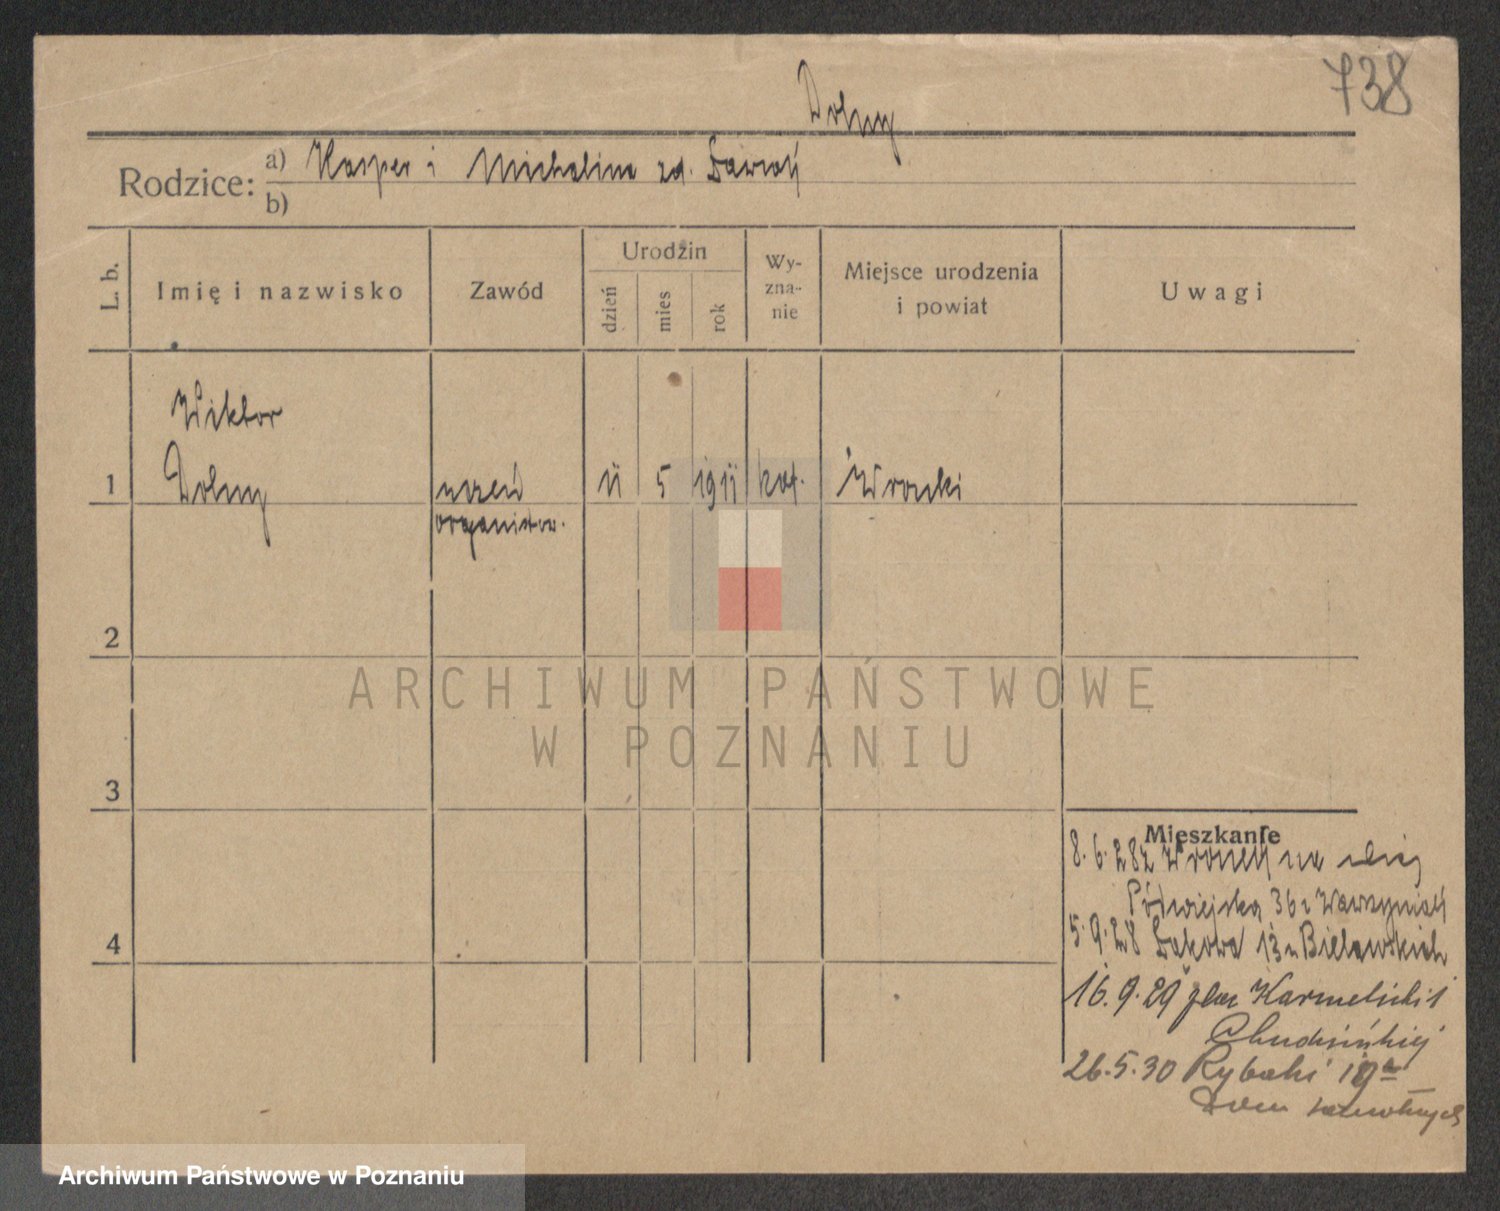 738
Dolny
Rodzice: a) Kasper i Michalina zd.
b)
L. b.
Imię i nazwisko
Zawód
Urodzin
dzień
mies
rok
Wy-
zna-
nie
Miejsce urodzenia
i powiat
Uwagi
Wiktor
1 Dolny uczeń 11 5 1911 kat. Wronki
organistow.
2
3
4
ARCHIWUM PAŃSTWOWE
W POZNANIU
Mieszkanie
8.6.28 z Wronek na
Półwiejska 36 u
5.9.28 13 u Bielawskich
16.9.29 plac Karmelicki 1
26.5.30 Rybaki 19a
Dom
Archiwum Państwowe w Poznaniu